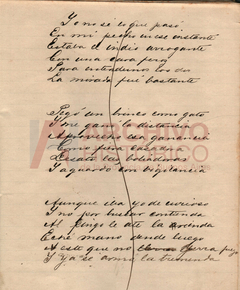 Yo no sé lo que pasó
En mi pecho en ese instante
Estaba el indio arrogante
Con una cara feroz
Para entendernos los dos
La mirada fué bastante
Pegó un brinco como gato
Y me ganó la distancia
Aprovechó esa ganancia
Como fiera cazadora
Desató las boliadoras
Y aguardó con vigilancia
Aunque yo iba de curioso
Y no por buscar contienda
Al pingo le até la rienda
Eché mano desde luego
A éste que no yerra fuego
Y ya se armó la tremenda
ARCHIVO